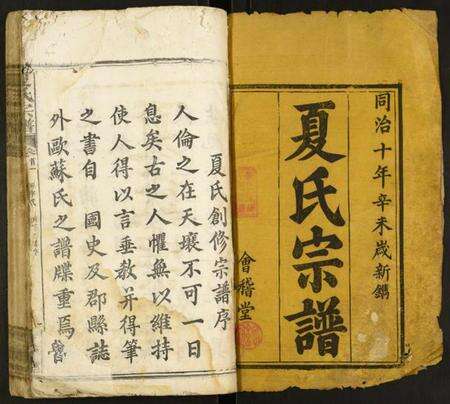 同治十年辛未歲新鐫
夏氏宗譜
會稽堂
夏氏創修宗譜序
人倫之在天壤不可一日
息矣古之人懼無以維持
使人得以言垂教并得筆
之書自 國史及郡縣誌
外歐蘇氏之譜牒重焉嘗